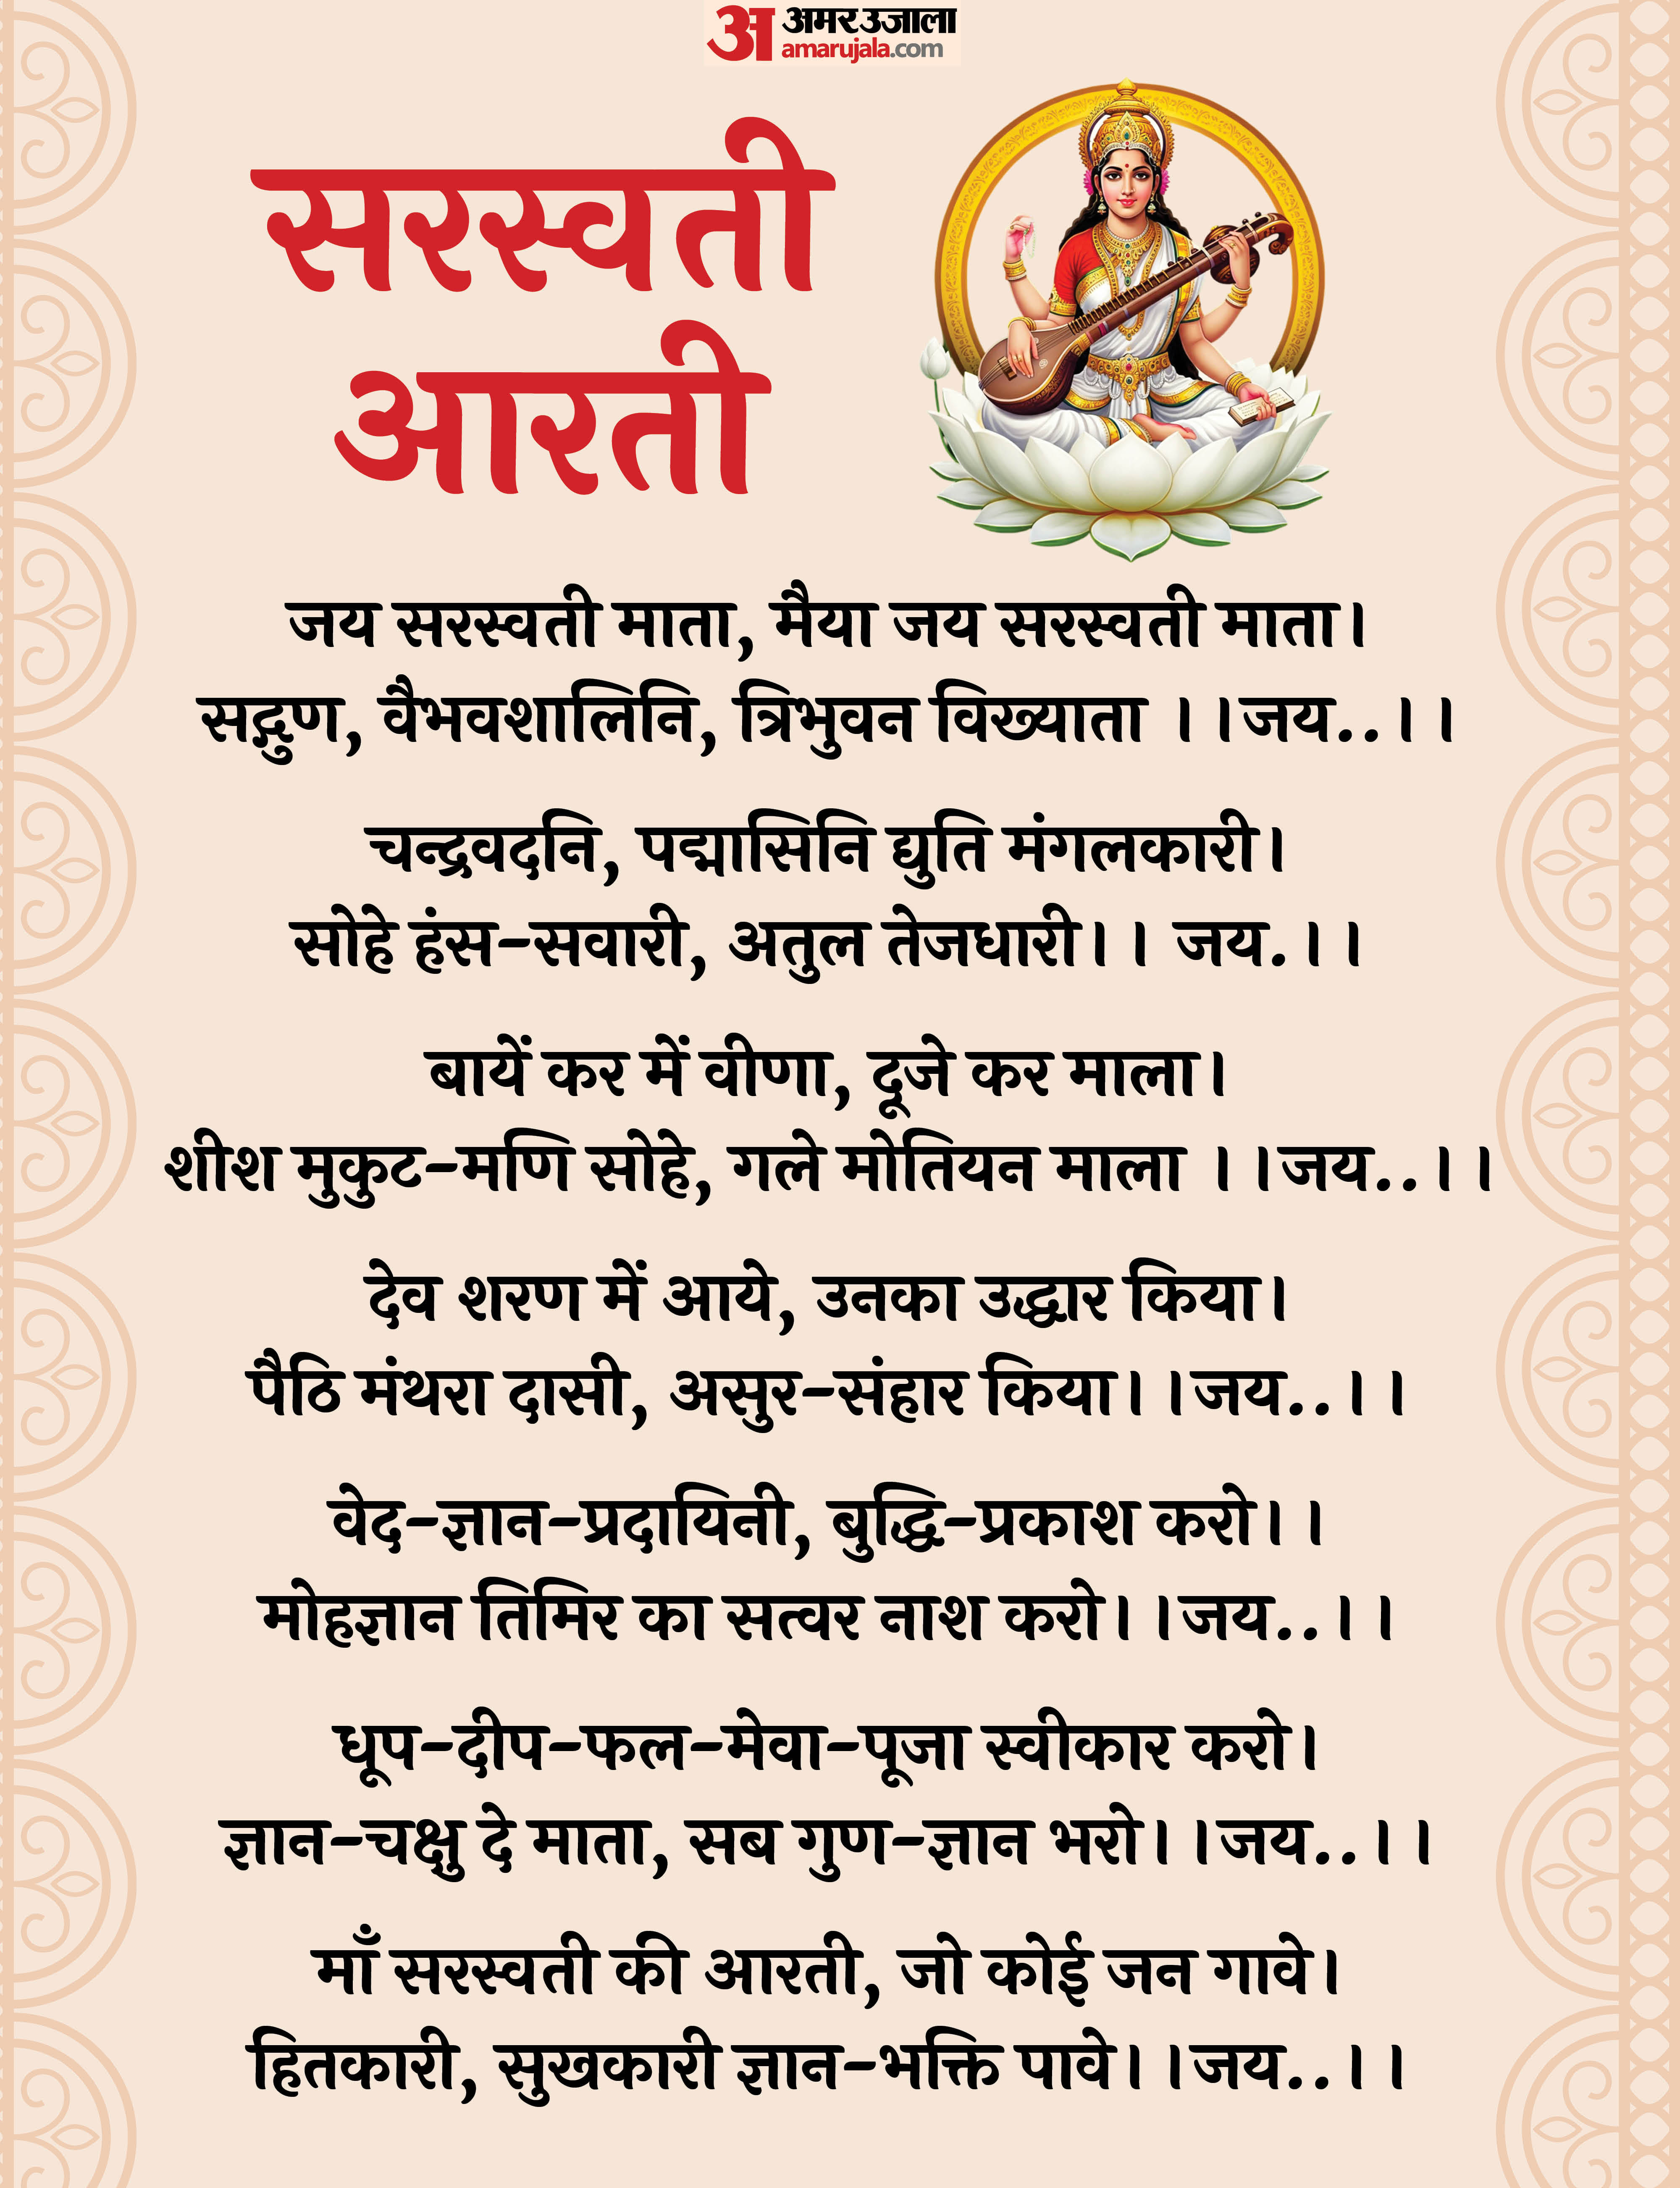 अ अमर उजाला
amarujala.com
सरस्वती
आरती
जय सरस्वती माता, मैया जय सरस्वती माता।
सद्गुण, वैभवशालिनि, त्रिभुवन विख्याता ।।जय..।।
चन्द्रवदनि, पद्मासिनि द्युति मंगलकारी।
सोहे हंस-सवारी, अतुल तेजधारी।। जय.।।
बायें कर में वीणा, दूजे कर माला।
शीश मुकुट-मणि सोहे, गले मोतियन माला ।।जय..।।
देव शरण में आये, उनका उद्धार किया।
पैठि मंथरा दासी, असुर-संहार किया।।जय..।।
वेद-ज्ञान-प्रदायिनी, बुद्धि-प्रकाश करो।।
मोहज्ञान तिमिर का सत्वर नाश करो।।जय..।।
धूप-दीप-फल-मेवा-पूजा स्वीकार करो।
ज्ञान-चक्षु दे माता, सब गुण-ज्ञान भरो।।जय..।।
माँ सरस्वती की आरती, जो कोई जन गावे।
हितकारी, सुखकारी ज्ञान-भक्ति पावे।।जय..।।